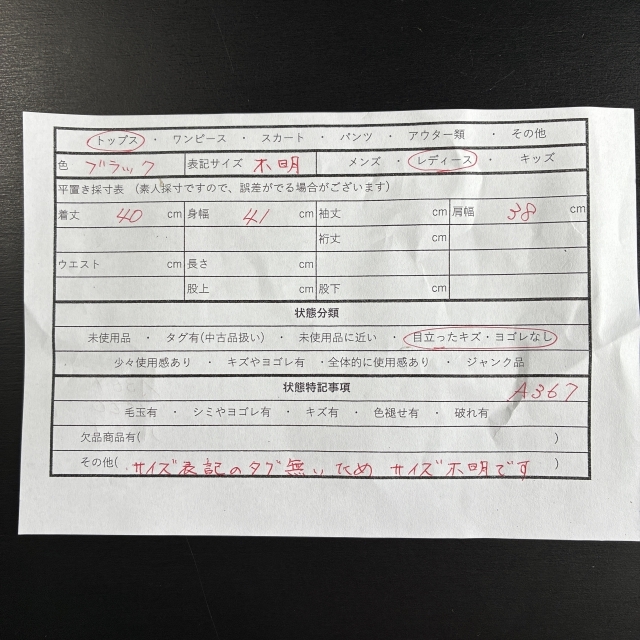 トップス ・ ワンピース ・ スカート ・ パンツ ・ アウター類 ・ その他
色 ブラック 表記サイズ 不明 メンズ ・ レディース ・ キッズ
平置き採寸表 (素人採寸ですので、誤差がでる場合がございます)
着丈 40 cm 身幅 41 cm 袖丈 cm 肩幅 38 cm
裄丈 cm
ウエスト cm 長さ cm
股上 cm 股下 cm
状態分類
未使用品 ・ タグ有(中古品扱い) ・ 未使用品に近い ・ 目立ったキズ・ヨゴレなし
少々使用感あり ・ キズやヨゴレ有 ・全体的に使用感あり ・ ジャンク品
状態特記事項 A367
毛玉有 ・ シミやヨゴレ有 ・ キズ有 ・ 色褪せ有 ・ 破れ有
欠品商品有( )
その他( サイズ表記のタグ無いため サイズ不明です )